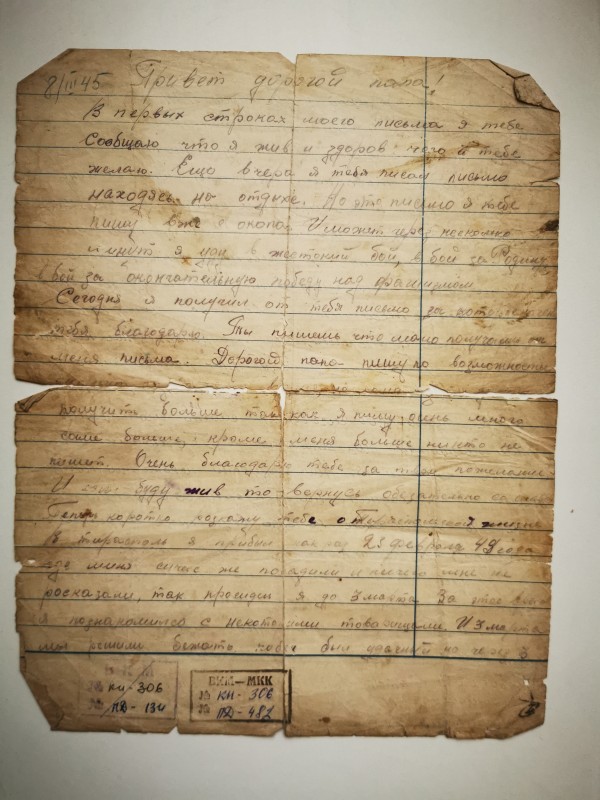 8/III 45 Привет дорогой папа!
В первых строках моего письма я тебе
сообщаю что я жив и здоров чего и тебе
желаю. Ещё вчера я тебе писал письмо
находясь на отдыхе. Но это письмо я тебе
пишу уже в окопах и может через несколько
минут я иду в жестокий бой, в бой за Родину,
в бой за окончательную победу над фашизмом
Сегодня я получил от тебя письмо за которое
тебя благодарю. Ты пишешь что мало получаешь от
меня письма. Дорогой папа пишу по возможности
получить больше так как я пишу очень много
больше, кроме меня больше никто не
пишет. Очень благодарю тебе за твои пожелания.
И буду жив то вернусь обязательно
коротко раскажу тебе о жизни
В тирасполь я прибыл 29 февраля
где меня сразу же посадили и ничего мне не
росказали, так просидел я до 3 марта За это
я познакомился с некоторыми товарищами. И 3 марта
мы решили бежать побег был удачный но через 3
№ КП-306
№ ПД-134
ВКМ-МКК
№ КП-306
№ ПД-482